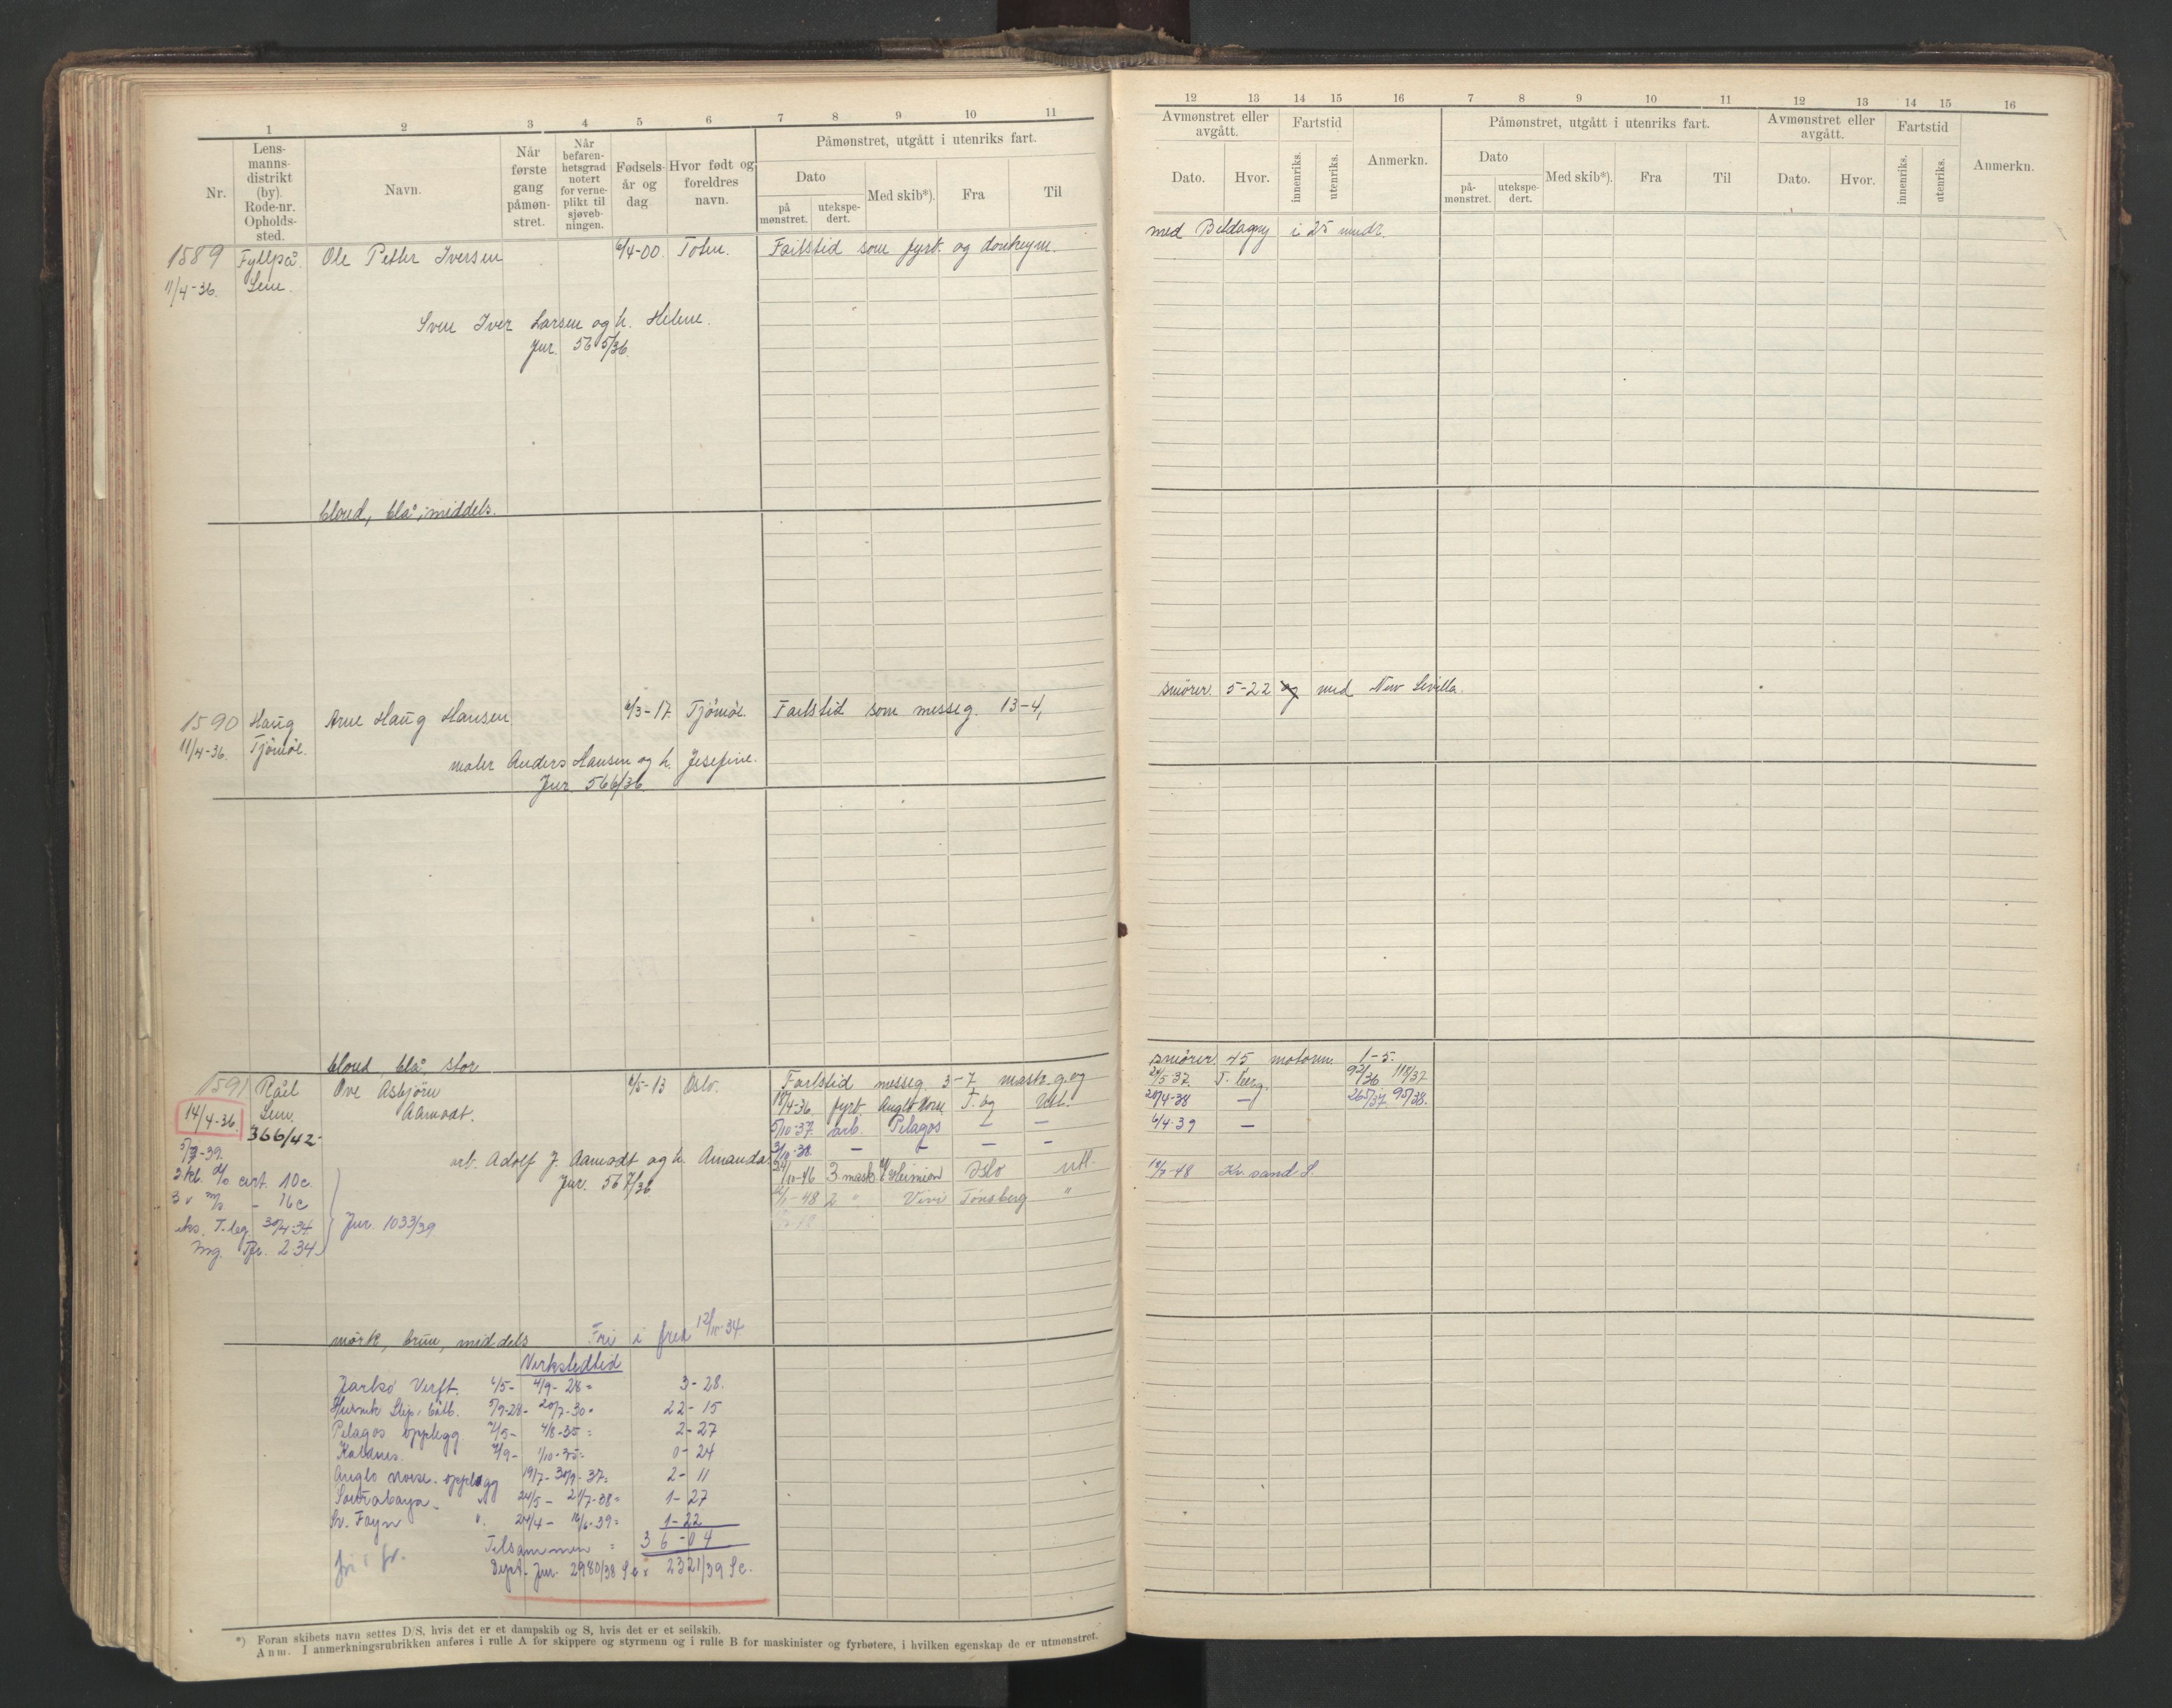 1 2 3 4 5 6 7 8 9 10 11
Nr.
Lens-
manns-
distrikt
(by).
Rode-nr.
Opholds-
sted.
Navn.
Når
første
gang
påmøn-
stret.
Når
befaren-
hetsgrad
notert
for verne-
plikt til
sjøveb-
ningen.
Fødsels-
år og
dag
Hvor født og
foreldres
navn.
Påmønstret, utgått i utenriks fart.
Dato
på
mønstret.
utekspe-
dert.
Med skib*).
Fra
Til
1589 Fyllpå Ole Petter Iversen 6/4-00 Toten. Fartstid som fyrb. og donkeym.
11/4-36. Sem.
Iver Larsen og h. Helene.
Jur. 565/36.
blond, blå, middels.
1590 Haug Arne Haug Hansen 6/3-17. Tjömöe. Fartstid som messeg. 13-4,
11/4-36. Tjömöe.
maler Anders Hansen og h. Josefine.
Jur. 566/36
blond, blå, stor
1591 Råel Ove Asbjörn 4/5-13 Oslo. Fartstid messeg. 3-7 mask.g. og
14/4-36. Sem Aamodt. 18/4-36. fyrb. Anglo Norse T.bg Utl.
366/42 5/10-37. arb. Pelagos — —
5/9-39. 3/10-38. — — — —
arb. Adolf J. Aamodt og h. Amanda.
3 kl. d/s cert. 10c. Jur. 567/36 /10-46 3 mask. Oslo utl.
3 " m/s - 16c /1-48 2 " Vivi Tønsberg "
T.bg. 30/4-34. Jur. 1033/39
2-34
mörk, brun, middels Fri i fred 12/10-34
Verkstedtid
Jarlsö Verft. 6/5- 4/9-28 = 3-28.
5/9-28- 20/7-30 = 22-15
Pelagos opplegg /5- 4/8-35 = 2-27
Kaldnes. /9- 1/10-35 = 0-24
Anglo Norse. opplegg 19/7- 30/9-37 = 2-11
Sourabaya - " 24/5- 21/7-38 = 1-27
Sv. Foyn " 24/4- 16/6-39 = 1-22
Tilsammen = 36-04
fri i fr. Dept. Jur. 2980/38 2321/39
*) Foran skibets navn settes D/S, hvis det er et dampskib og S, hvis det er et seilskib.
Anm. I anmerkningsrubrikken anføres i rulle A for skippere og styrmenn og i rulle B for maskinister og fyrbøtere, i hvilken egenskap de er utmønstret.
12 13 14 15 16 7 8 9 10 11 12 13 14 15 16
Avmønstret eller
avgått.
Dato.
Hvor.
Fartstid
innenriks.
utenriks.
Anmerkn.
Påmønstret, utgått i utenriks fart.
Dato
på-
mønstret.
utekspe-
dert.
Med skib*).
Fra
Til
Avmønstret eller
avgått.
Dato.
Hvor.
Fartstid
innenriks.
utenriks.
Anmerkn.
med Beldagny i 25 mndr.
smörer. 5-22 og med New Sevilla.
smörer. 45 motorm. 1-5.
24/5-37. T.berg. 92/36 118/37
20/4-38 — 265/37 95/38.
6/4-39 —
-48 Kr.sand S.